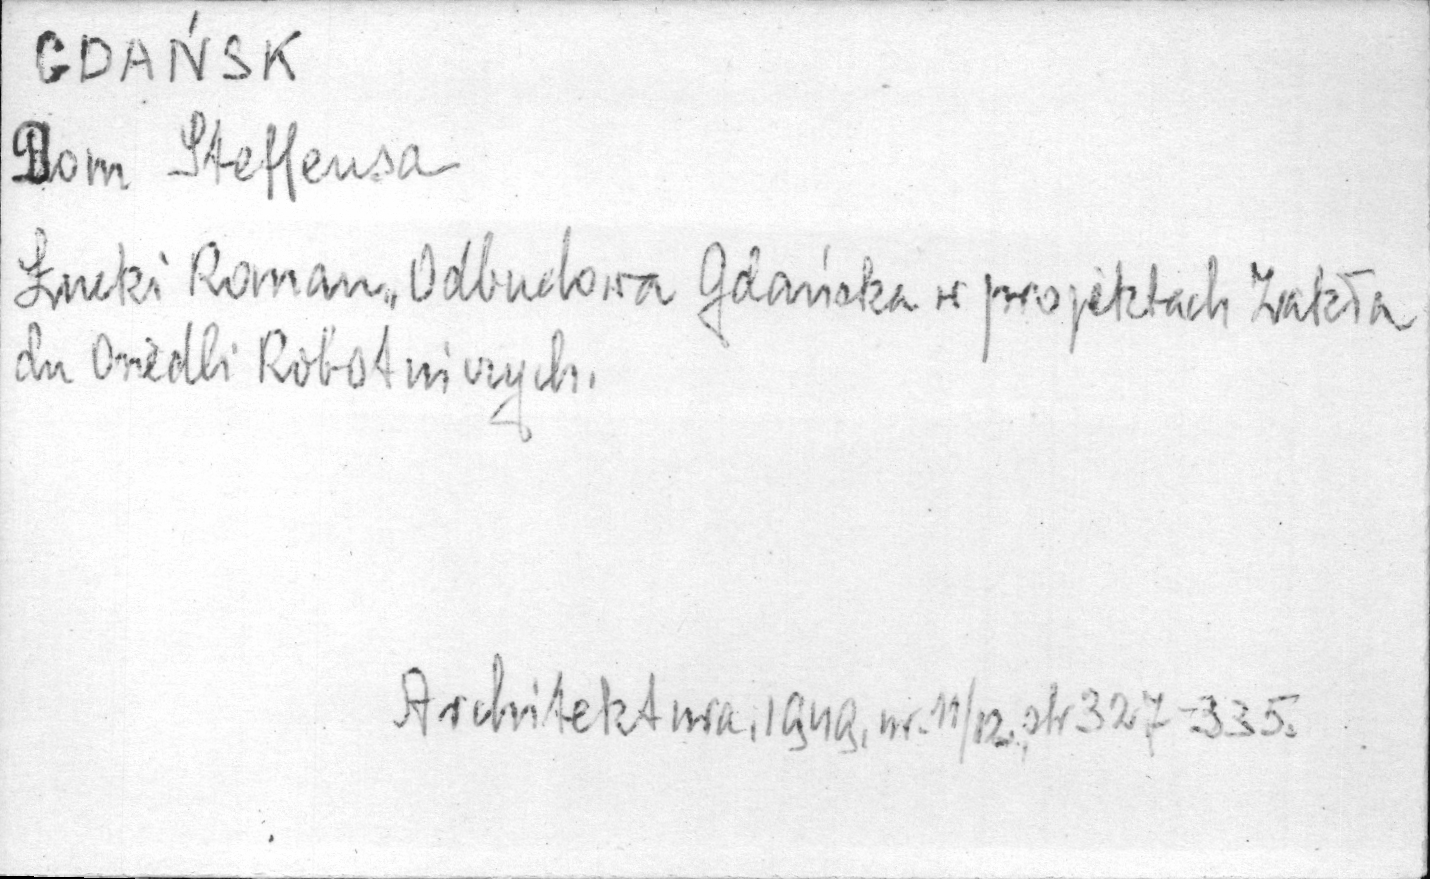 GDAŃSK
Dom Steffensa
Roman „Odbudowa Gdańska w projektach Zakła
du Osiedli Robotniczych.
Architektura, 1949, nr. 11/12, str 327-335.